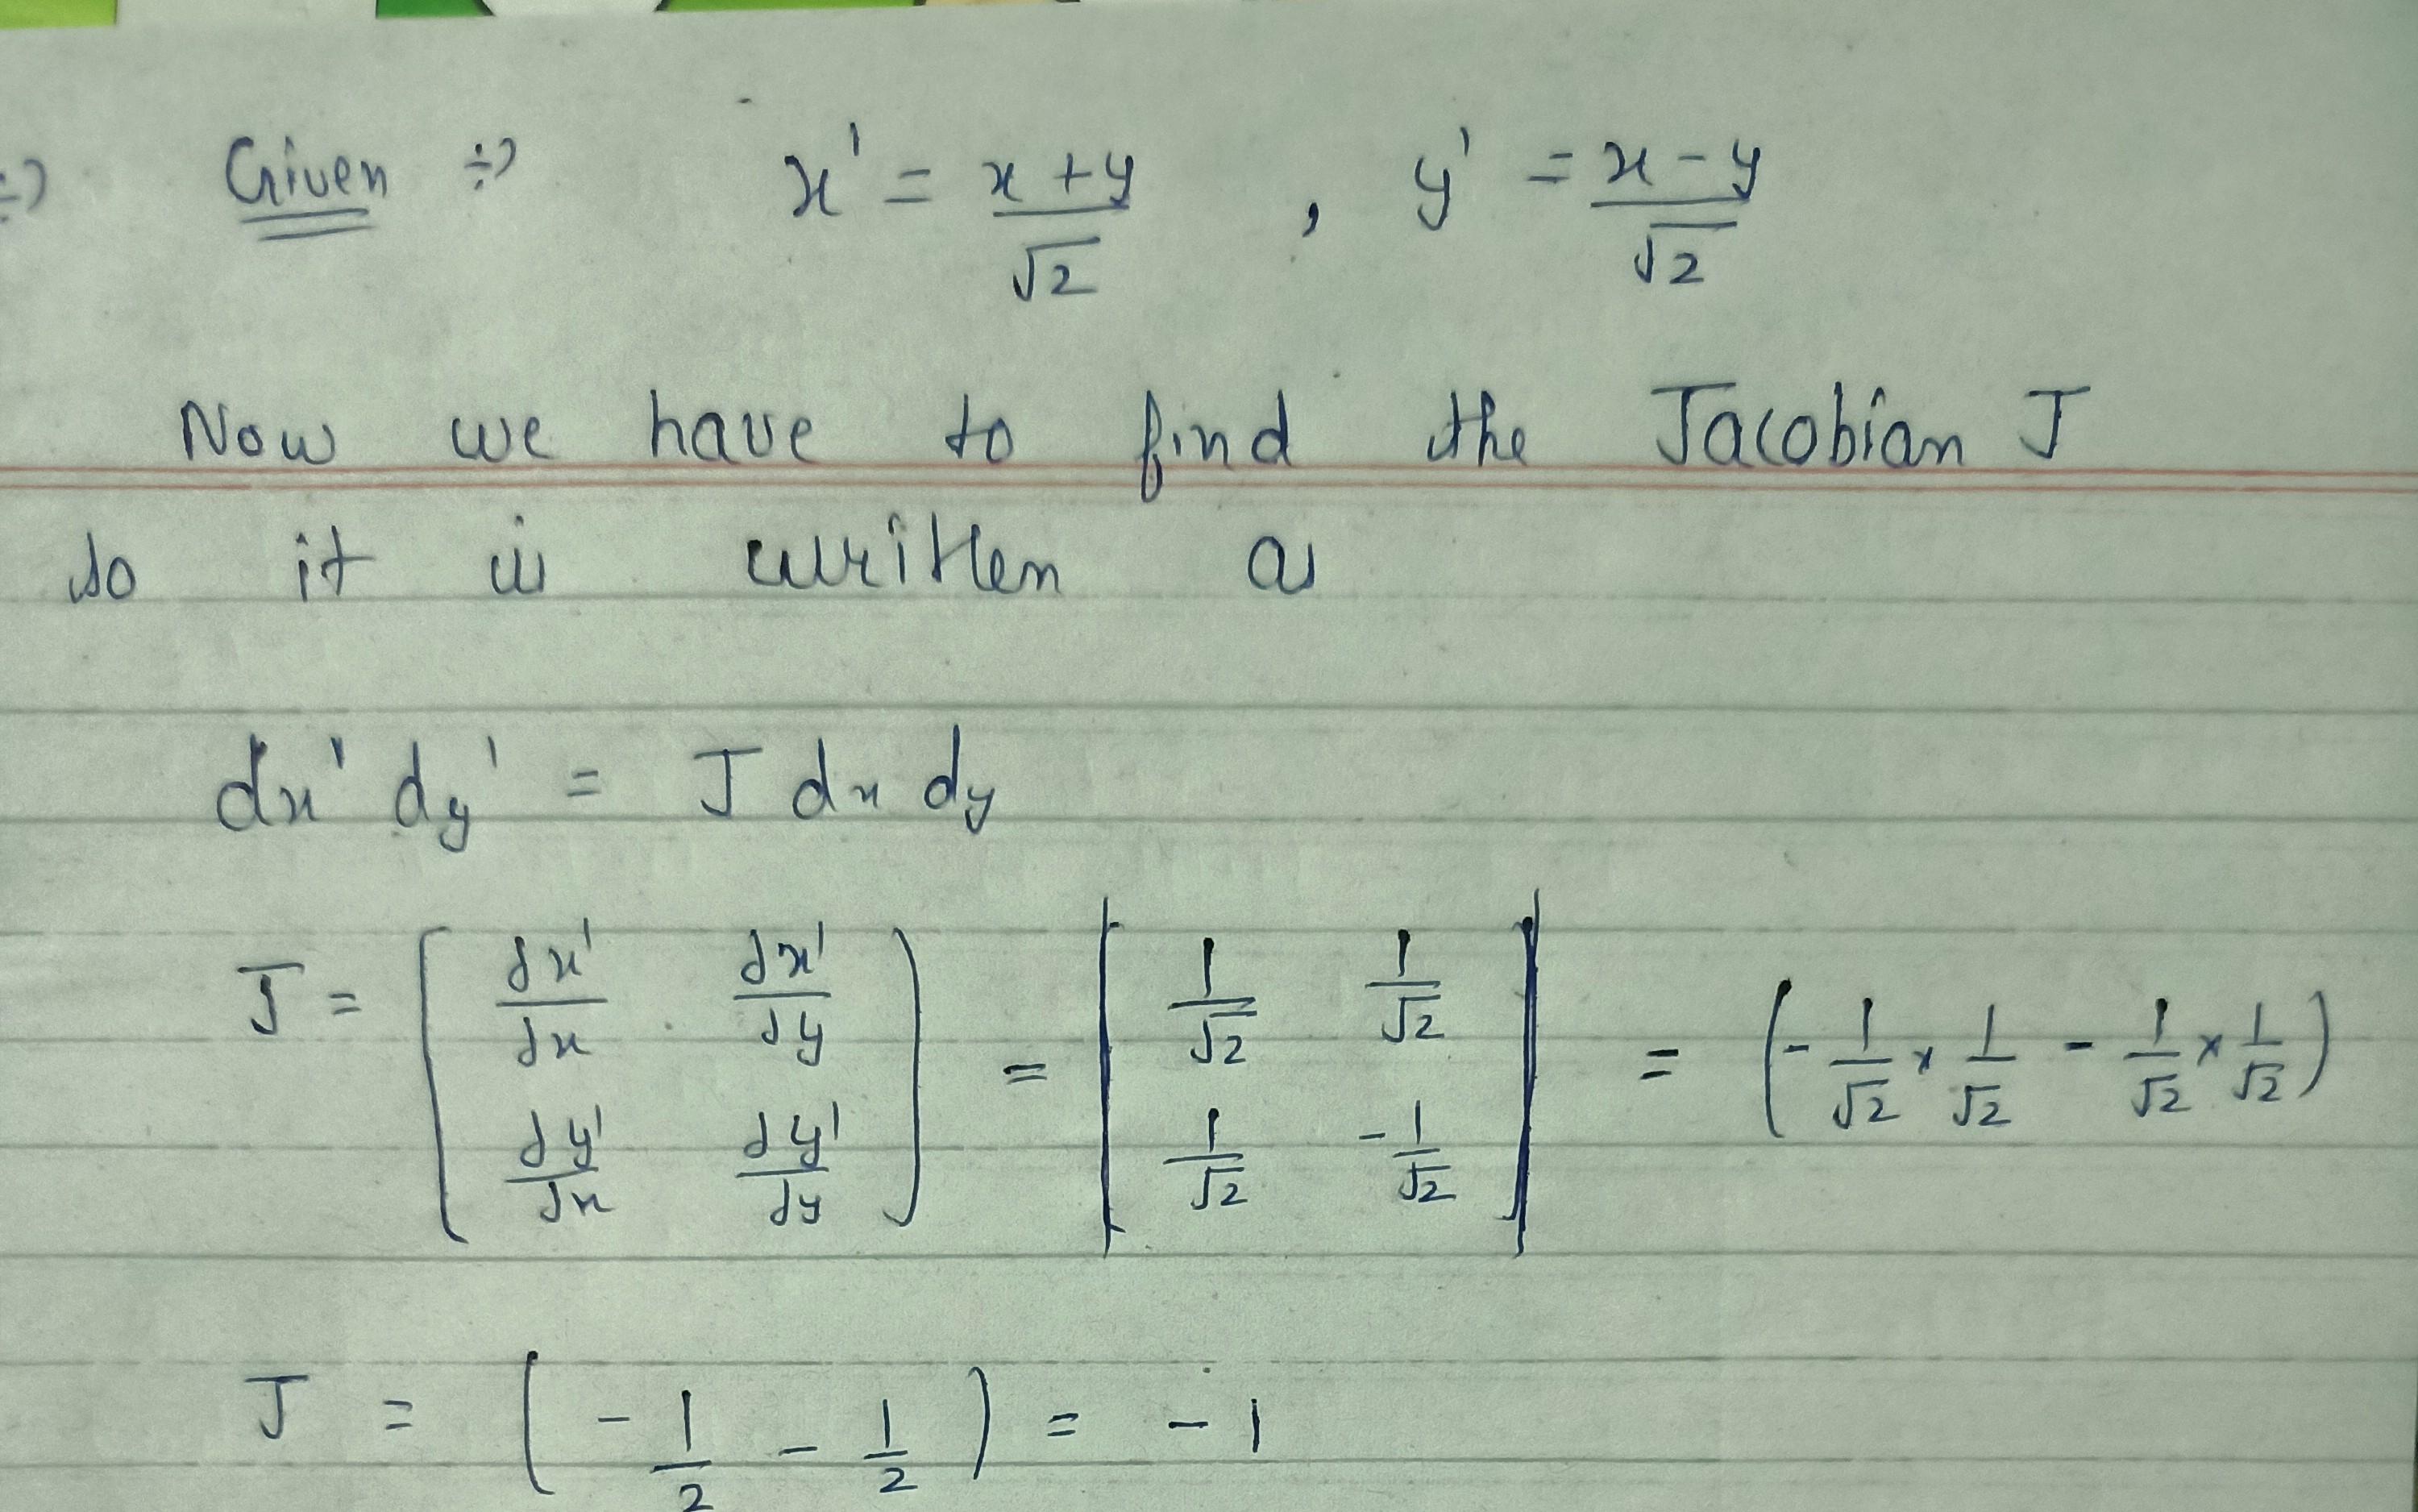 ÷) Given ÷) x' = x+y/√2 , y' = x-y/√2
Now we have to find the Jacobian J
so it is written as
dx' dy' = J dx dy
J = [ ∂x'/∂x ∂x'/∂y ∂y'/∂x ∂y'/∂y ) = | 1/√2 1/√2 1/√2 -1/√2 | = (-1/√2 × 1/√2 - 1/√2 × 1/√2)
J = (-1/2 - 1/2) = -1